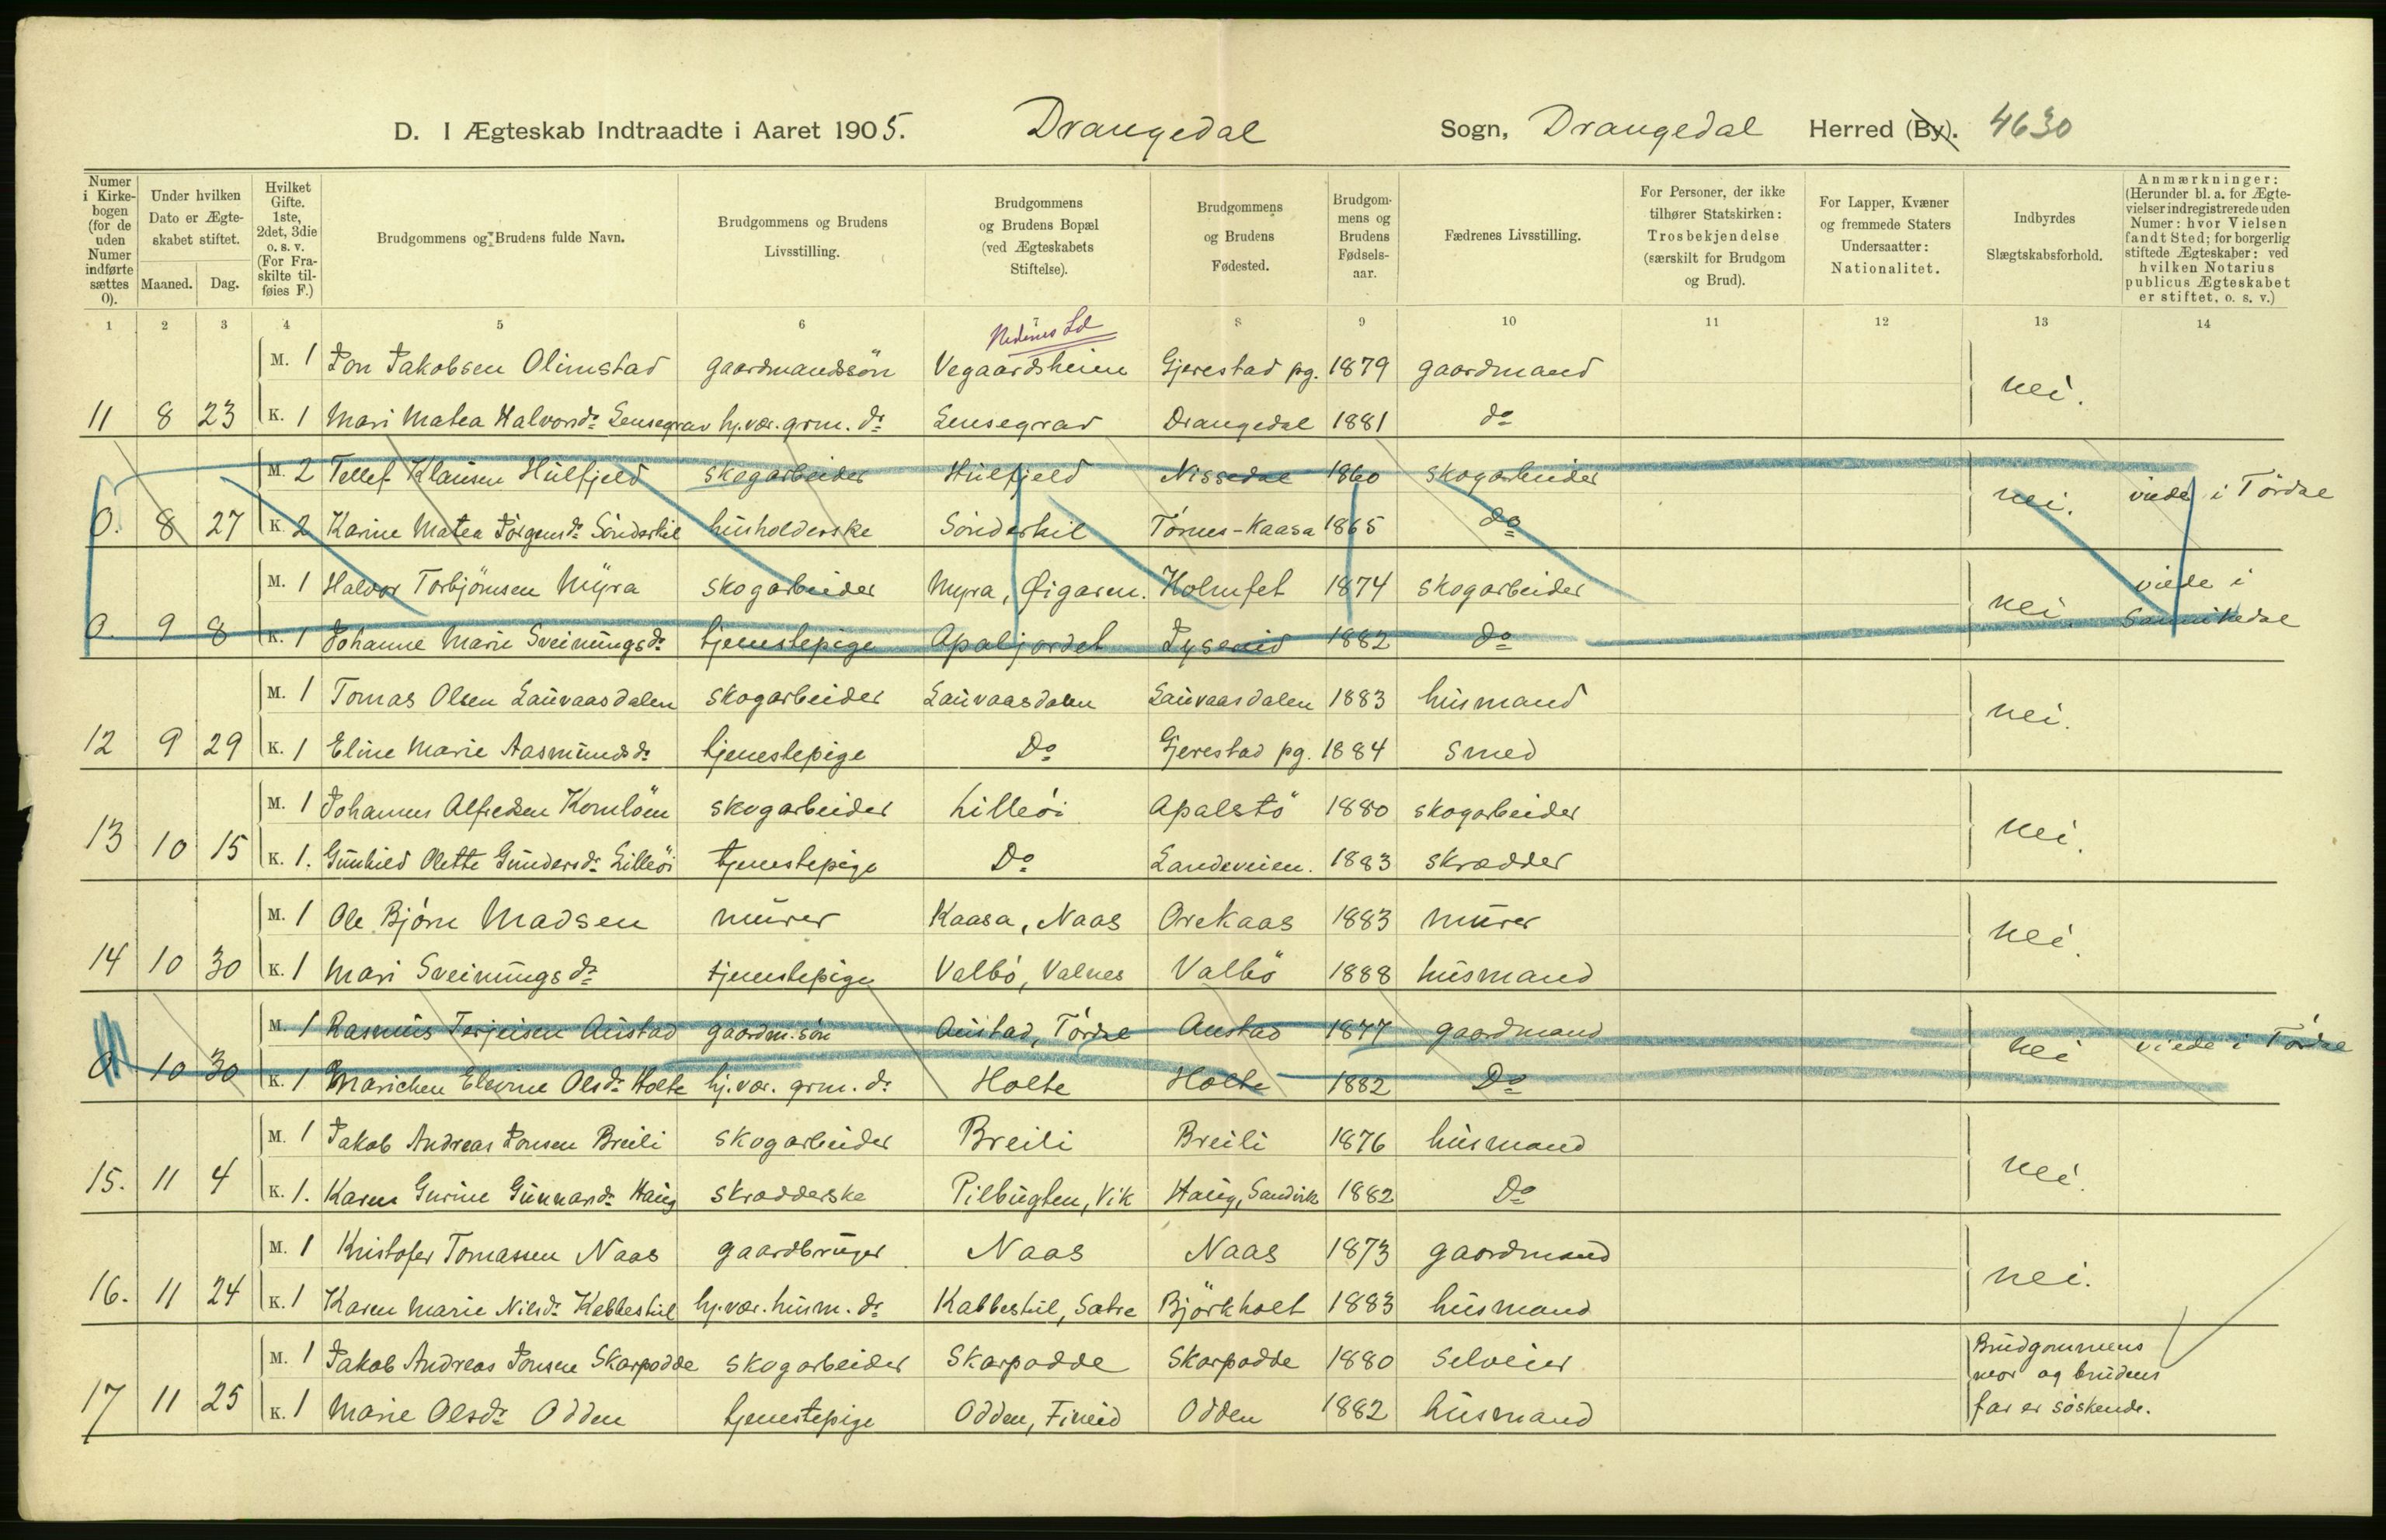 D. I Ægteskab Indtraadte i Aaret 1905. Drangedal Sogn, Drangedal Herred (By). 4630
Numer i Kirkebogen (for de uden Numer indførte sættes 0).
Under hvilken Dato er Ægteskabet stiftet.
Maaned. Dag.
Hvilket Gifte. 1ste, 2det, 3die o. s. v. (For Fraskilte tilføies F.)
Brudgommens og Brudens fulde Navn.
Brudgommens og Brudens Livsstilling.
Brudgommens og Brudens Bopæl (ved Ægteskabets Stiftelse).
Brudgommens og Brudens Fødested.
Brudgommens og Brudens Fødselsaar.
Fædrenes Livsstilling.
For Personer, der ikke tilhører Statskirken: Trosbekjendelse (særskilt for Brudgom og Brud).
For Lapper, Kvæner og fremmede Staters Undersaatter: Nationalitet.
Indbyrdes Slægtskabsforhold.
Anmærkninger: (Herunder bl. a. for Ægtevielser indregistrerede uden Numer: hvor Vielsen fandt Sted; for borgerlig stiftede Ægteskaber: ved hvilken Notarius publicus Ægteskabet er stiftet, o. s. v.)
1 2 3 4 5 6 7 8 9 10 11 12 13 14
Nedenes Ld
M. 1 Jon Jakobsen Olimstad gaardmandssön Vegaardsheien Gjerestad pg. 1879 gaardmand nei.
11 8 23 K. 1 Mari Matea Halvorsdr Lensegrav hj.vær. grm. dr Lensegrav Drangedal 1881 do
M. 2 Tellef Klausen Hulfjeld skogarbeider Hulfjeld Nissedal 1860 skogarbeider nei. viede i Tördal
0. 8 27 K. 2 Karine Matea Jörgensdr Sönderkil husholderske Sönderkil Törnes-Kaasa 1865 do
M. 1 Halvor Torbjörnsen Myra skogarbeider Myra, Øigaren. Holmfet 1874 skogarbeider nei. viede i
0. 9 8 K. 1 Johanne Marie Sveinungsdr tjenestepige Apaljordet 1882 do Sannikedal
M. 1 Tomas Olsen Lauvaasdalen skogarbeider Lauvaasdalen Lauvaasdalen 1883 husmand nei.
12 9 29 K. 1 Eline Marie Aasmundsdr tjenestepige Do Gjerestad pg. 1884 smed
M. 1 Johannes Alfredsen Kornlöen skogarbeider Lilleöi Apalstö 1880 skogarbeider nei.
13 10 15 K. 1. Gunhild Olette Gundersdr Lilleöi tjenestepige Do Landeveien. 1883 skrædder
M. 1 Ole Björn Madsen murer Kaasa, Naas Orekaas 1883 murer nei.
14 10 30 K. 1 Mari Sveinungsdr tjenestepige Valbö, Valnes Valbö 1888 husmand
M. 1 Rasmus Terjeisen Austad gaardm. sön Austad, Tördal Austad 1877 gaardmand nei viede i Tördal
0 10 30 K. 1 Marichen Elevine Olsdr Holte hj.vær. grm. dr Holte Holte 1882 Do
M. 1 Jakob Andreas Jonsen Breili skogarbeider Breili Breili 1876 husmand nei.
15. 11 4 K. 1. Karen Gurine Gunnarsdr Haug skrædderske Pilbugten, Vik Haug, Sandvik 1882 Do
M. 1 Kristofer Tomassen Naas gaardbruger Naas Naas 1873 gaardmand nei.
16. 11 24 K. 1 Karen Marie Nilsdr Kabbestul hj.vær. husm. dr Kabbestul, Sætre Björkholt 1883 husmand
M. 1 Jakob Andreas Jonsen Skarpodde skogarbeider Skarpodde Skarpodde 1880 selveier Brudgommens
mor og brudens
17 11 25 K. 1 Marie Olsdr Odden tjenestepige Odden, Fineid Odden 1882 husmand far er söskende.